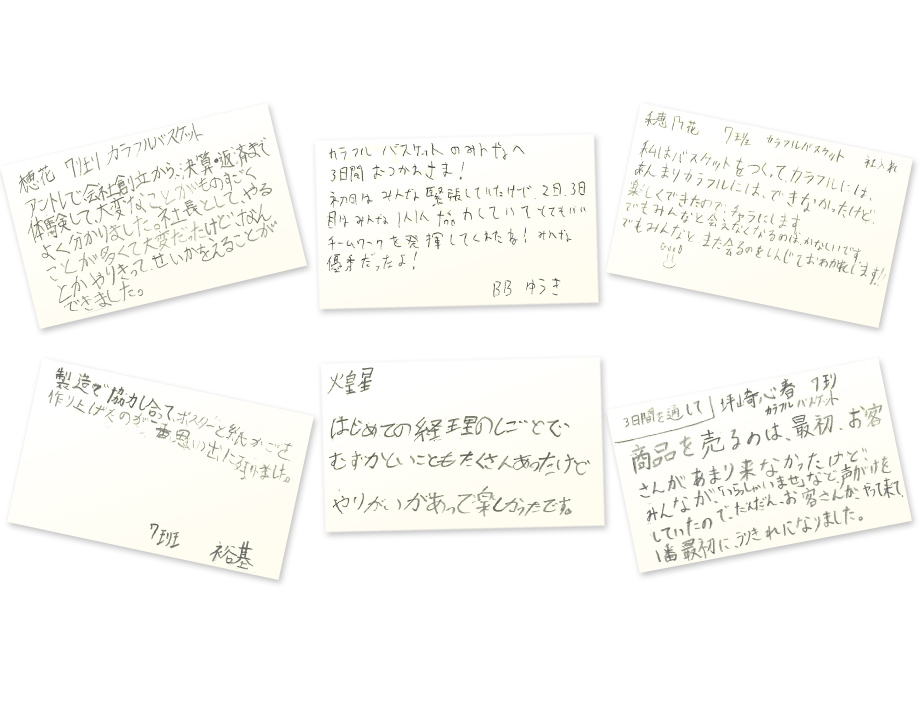 穂花 7班 カラフルバスケット
アントレで会社創立から、決算・返済まで
体験して、大変なことがものすごく
よく分かりました。社長として、やる
ことが多くて大変だったけど、なん
とかやりきって、せいかをえることが
できました。
カラフル バスケットのみんなへ
3日間おつかれさま!
初日はみんな緊張していたけど、2日、3日
目はみんな1人1人協力していてとてもいい
チームワークを発揮してくれたね!みんな
優秀だったよ!
BB ゆうき
穂乃花 7班 カラフルバスケット 社長
私はバスケットをつくって、カラフルには、
あんまりカラフルには、できなかったけど、
楽しくできたので、チャラにします
でもみんなと会えなくなるのは、かなしいです
でもみんなと また会るのをしんじておわかれします!!
GOOD
製造で協力し合って、ポスターと紙かごを
作り上げたのが一番思い出に残りました。
7班 裕基
煌星
はじめての経理のしごとで
むずかしいこともたくさんあったけど
やりがいがあって楽しかったです。
3日間を通して 坪崎心春 7班
カラフルバスケット
商品を売るのは、最初、お客
さんがあまり来なかったけど、
みんなが、「いらっしゃいませ」など、声がけを
していたので、だんだん、お客さんが、やって来て、
1番最初に、うりきれになりました。